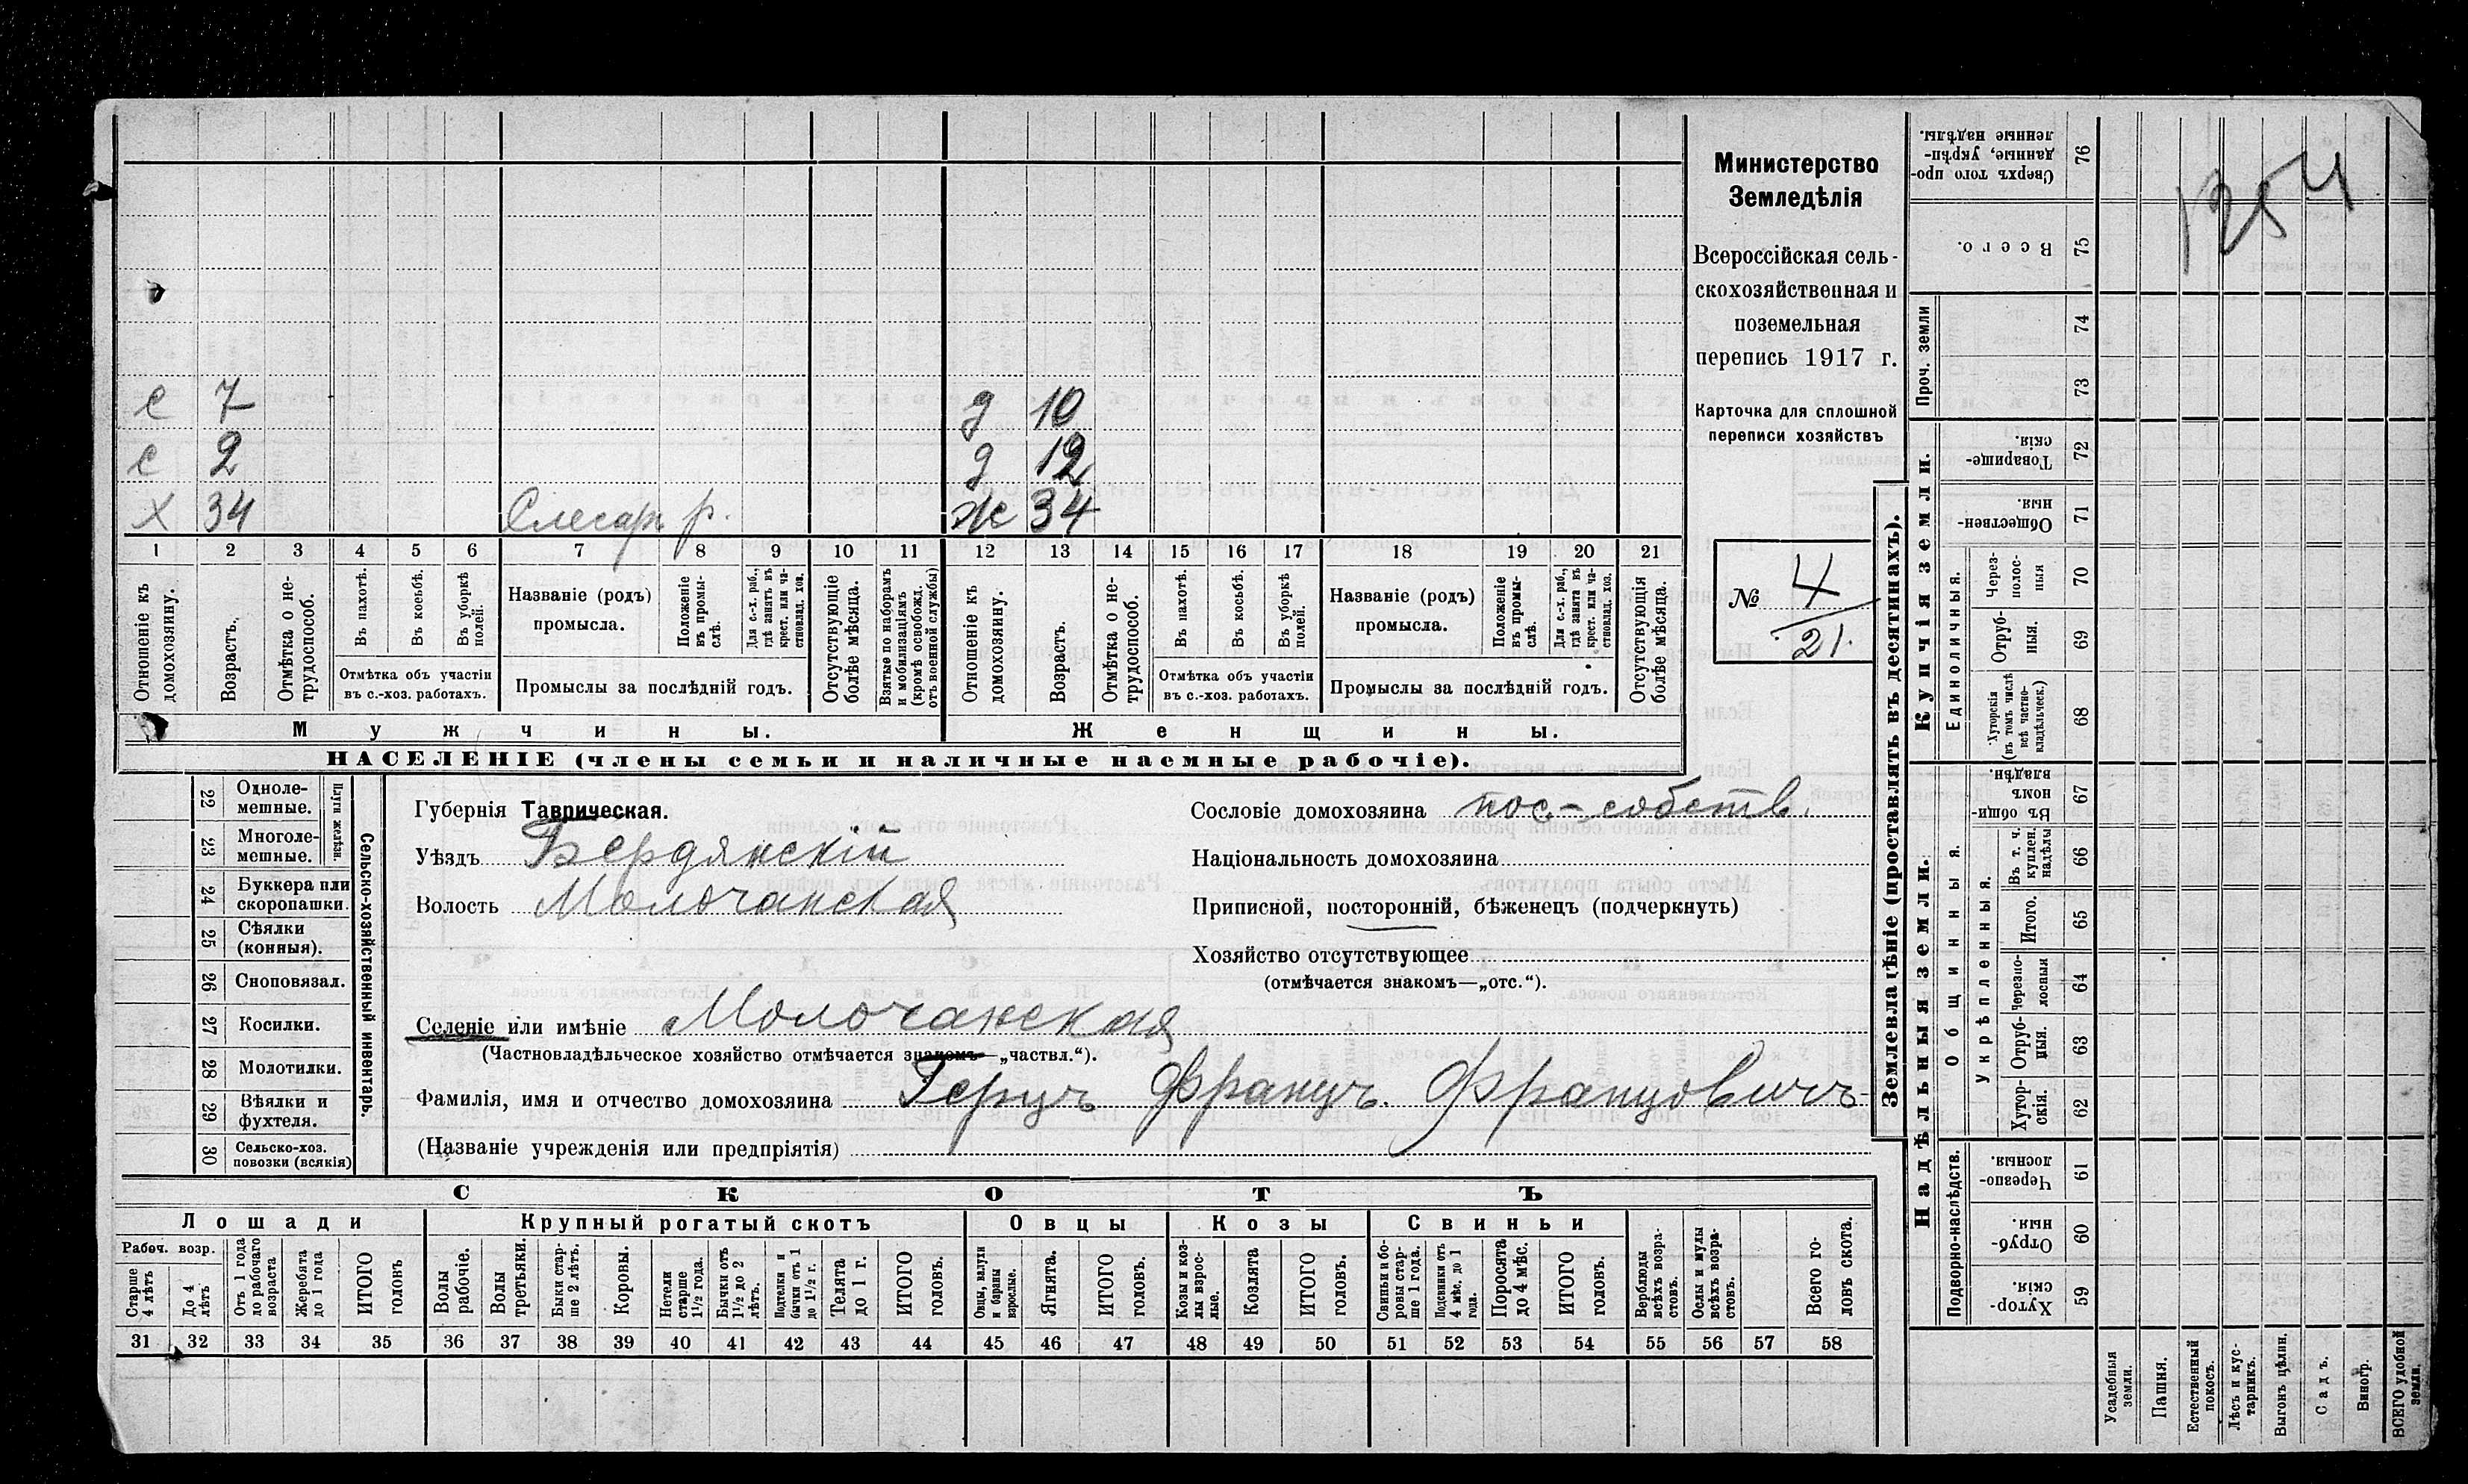 с 7 д 10
с 2 д 12
х 34 Слесарь р. ж 34
1 2 3 4 5 6 7 8 9 10 11 12 13 14 15 16 17 18 19 20 21
Отношеніе къ домохозяину.
Возрастъ.
Отмѣтка о нетрудоспособ.
Въ пахотѣ.
Въ косьбѣ.
Въ уборкѣ полей.
Отмѣтка объ участіи
въ с.-хоз. работахъ.
Названіе (родъ)
промысла.
Положеніе въ промыслѣ.
Для с.-х. раб., гдѣ занятъ въ крест. или частновлад. хоз.
Промыслы за послѣдній годъ.
Отсутствующіе болѣе мѣсяца.
Взятые по наборамъ и мобилизаціямъ (кромѣ освобожд. отъ военной службы)
Отношеніе къ домохозяину.
Возрастъ.
Отмѣтка о нетрудоспособ.
Въ пахотѣ.
Въ косьбѣ.
Въ уборкѣ полей.
Отмѣтка объ участіи
въ с.-хоз. работахъ.
Названіе (родъ)
промысла.
Положеніе въ промыслѣ.
Для с.-х. раб., гдѣ занята въ крест. или частновлад. хоз.
Промыслы за послѣдній годъ.
Отсутствующія болѣе мѣсяца.
Мужчины. Женщины.
НАСЕЛЕНІЕ (члены семьи и наличные наемные рабочіе).
Министерство
Земледѣлія
Всероссійская сель-
скохозяйственная и
поземельная
перепись 1917 г.
Карточка для сплошной
переписи хозяйствъ
№ 4/21.
22 Одноле-
мешные.
23 Многоле-
мешные.
Плуги желѣзн.
24 Буккера или
скоропашки.
25 Сѣялки
(конныя).
26 Сноповязал.
27 Косилки.
28 Молотилки.
29 Вѣялки и
фухтеля.
30 Сельско-хоз.
повозки (всякія)
Сельско-хозяйственный инвентарь.
Губернія Таврическая.
Уѣздъ Бердянскій
Волость Молочанская
Сословіе домохозяина пос-собств.
Національность домохозяина
Приписной, посторонній, бѣженецъ (подчеркнуть)
Хозяйство отсутствующее
(отмѣчается знакомъ—„отс.“).
Селеніе или имѣніе Молочанская
(Частновладѣльческое хозяйство отмѣчается знакомъ—„частвл.“).
Фамилія, имя и отчество домохозяина Герцъ Францъ. Францовичъ
(Названіе учрежденія или предпріятія)
СКОТЪ
Лошади Крупный рогатый скотъ Овцы Козы Свиньи
Рабоч. возр.
Старше 4 лѣтъ
До 4 лѣтъ
Отъ 1 года до рабочаго возраста
Жеребята до 1 года
ИТОГО головъ
Волы рабочіе.
Волы третьяки.
Быки старше 2 лѣтъ.
Коровы.
Нетели старше 1½ года.
Бычки отъ 1½ до 2 лѣтъ.
Подтелки и бычки отъ 1 до 1½ г.
Телята до 1 г.
ИТОГО головъ.
Овцы, валухи и бараны взрослые.
Ягнята.
ИТОГО головъ.
Козы и козлы взрослые.
Козлята
ИТОГО головъ.
Свиньи и боровы старше 1 года.
Подсвинки отъ 4 мѣс. до 1 года.
Поросята до 4 мѣс.
ИТОГО головъ.
Верблюды всѣхъ возрастовъ.
Ослы и мулы всѣхъ возрастовъ.
Всего головъ скота.
31 32 33 34 35 36 37 38 39 40 41 42 43 44 45 46 47 48 49 50 51 52 53 54 55 56 57 58
Землевладѣніе (проставлять въ десятинахъ).
Надѣльныя земли. Купчія земли. Проч. земли
Подворно-наслѣдств.
Общинныя.
Укрѣпленныя.
Единоличныя.
Сверхъ того проданные, укрѣпленные надѣлы. 76
Всего. 75
74
73
Товарищескія. 72
Общественныя. 71
Черезполосныя 70
Отрубныя. 69
Хуторскія (въ томъ числѣ всѣ частновладѣльческ.) 68
Въ общинномъ владѣн. 67
Въ т. ч. куплен. надѣлы 66
Итого. 65
Черезполосныя 64
Отрубныя. 63
Хуторскія. 62
Черезполосныя. 61
Отрубныя. 60
Хуторскія. 59
Усадебныя земли.
Пашня.
Естественный покосъ.
Лѣсъ и кустарникъ.
Выгонъ цѣлин.
Садъ.
Виногр.
ВСЕГО удобной земли.
1254